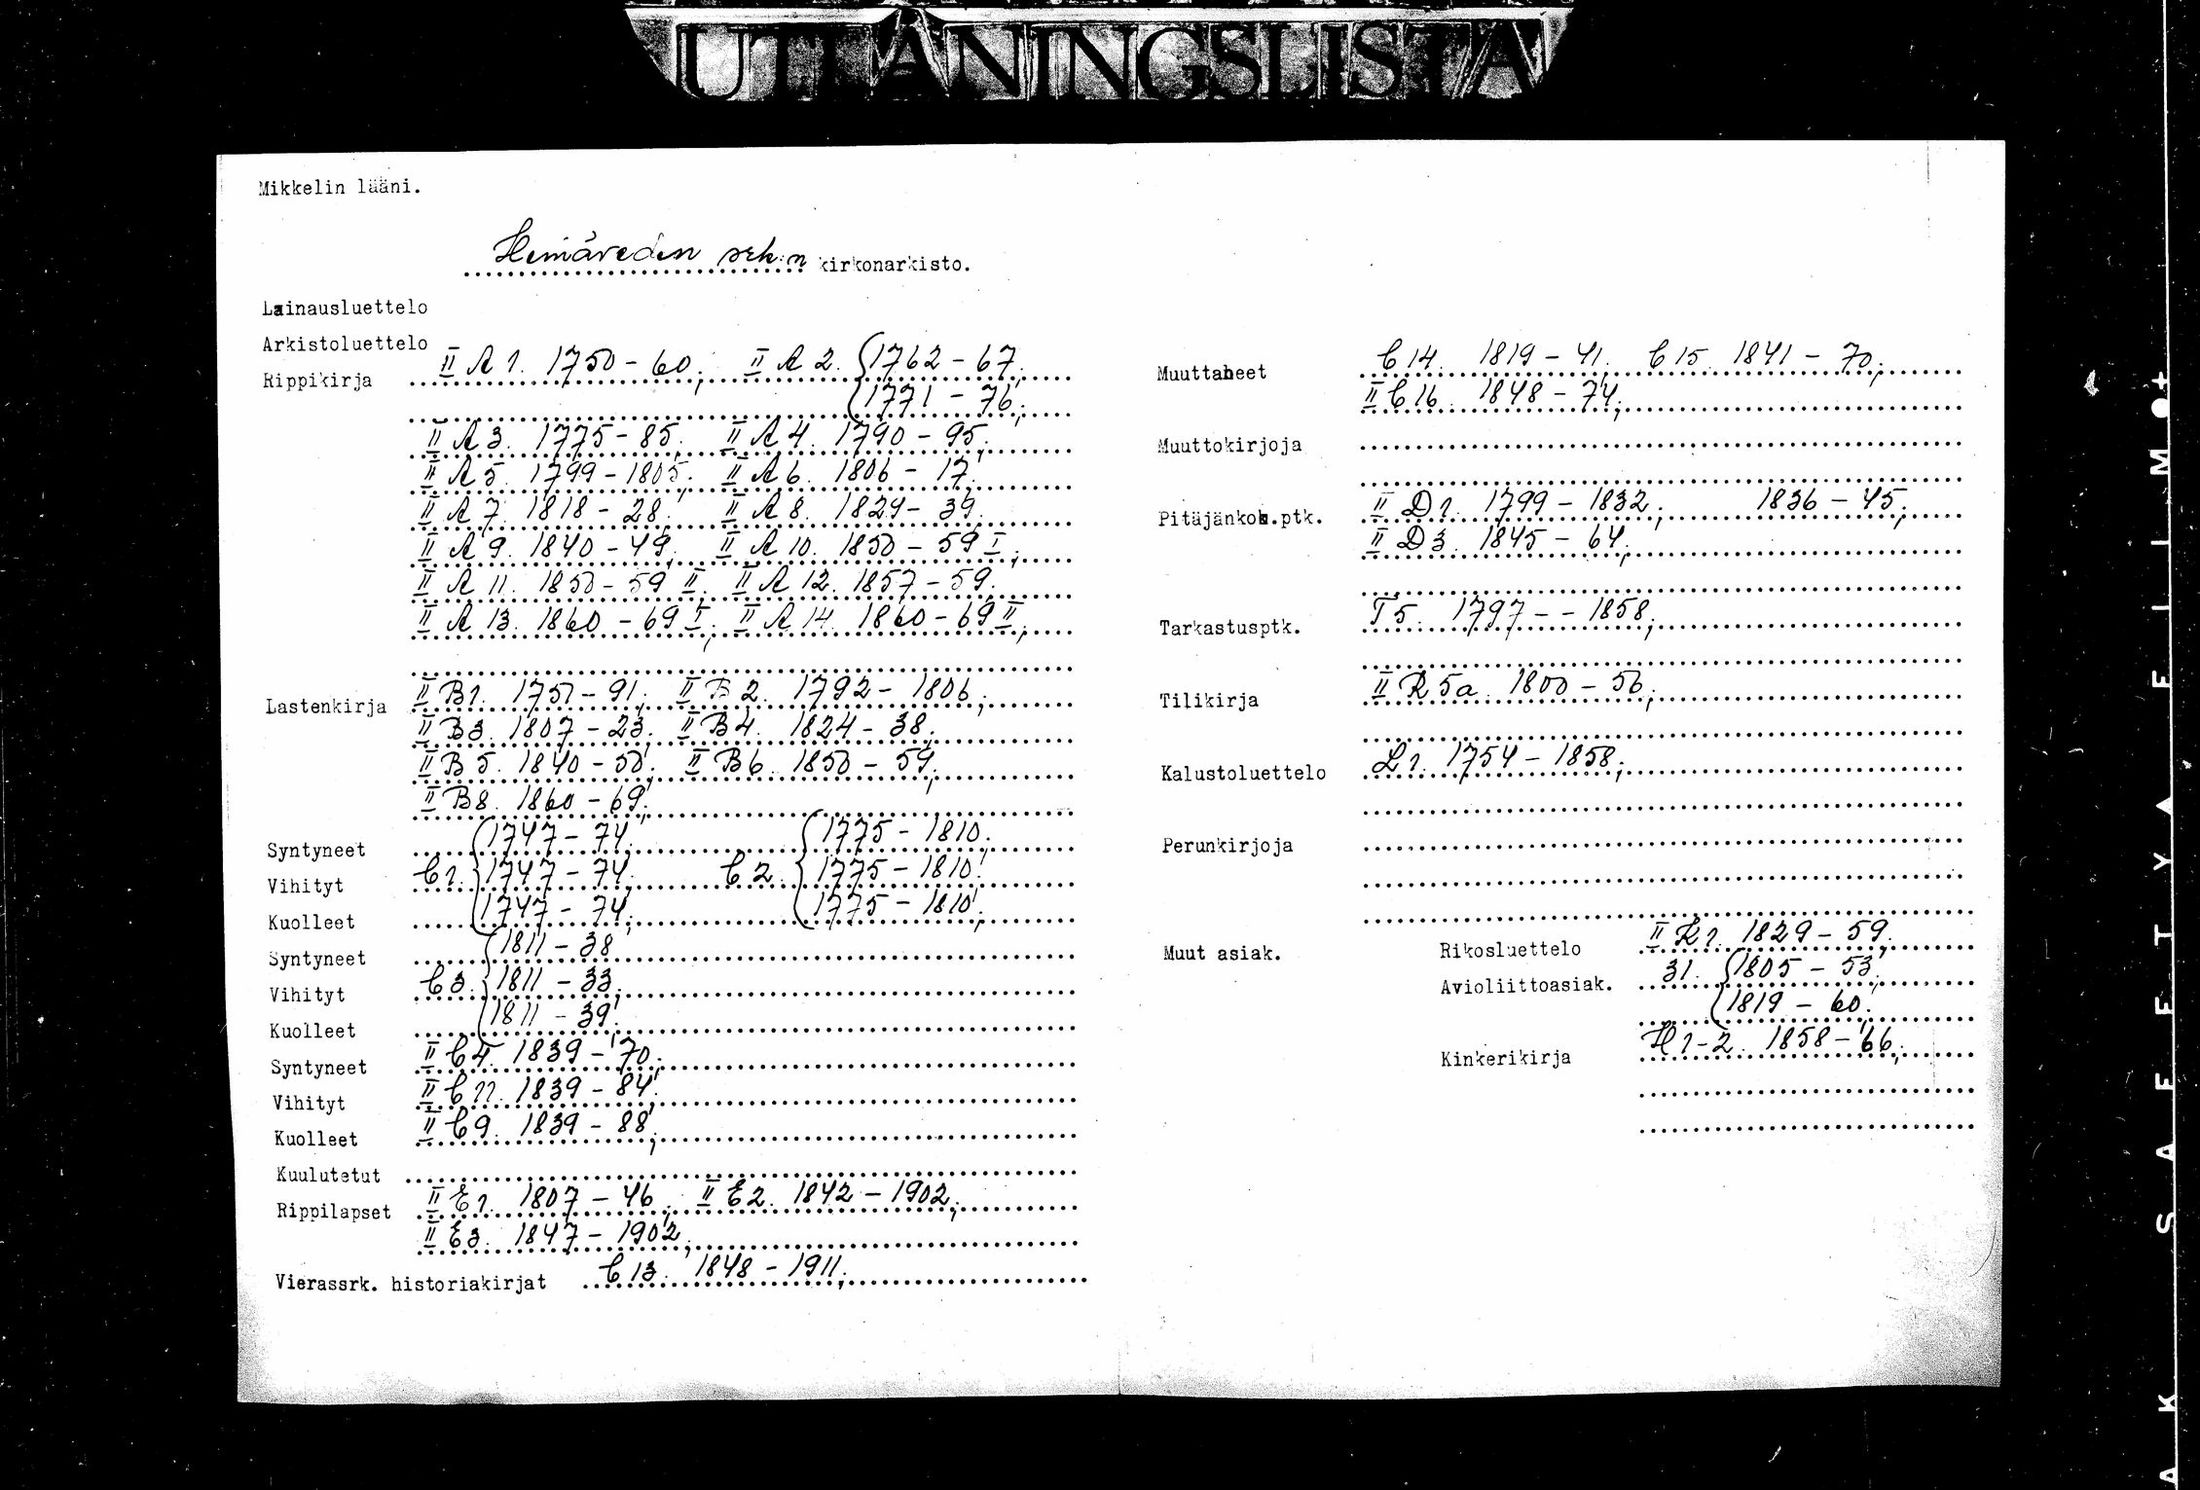 UTLÅNINGSLISTA
Mikkelin lääni.
Heinäveden srk:n kirkonarkisto.
Lainausluettelo
Arkistoluettelo
Rippikirja II A 1. 1750-60; II A 2. 1762-67;
1771-76;
II A 3. 1775-85; II A 4. 1790-95;
II A 5. 1799-1805; II A 6. 1806-17;
II A 7. 1818-28; II A 8. 1829-39;
II A 9. 1840-49; II A 10. 1850-59 I;
II A 11. 1850-59 II; II A 12. 1857-59.
II A 13. 1860-69 I; II A 14. 1860-69 II;
Lastenkirja II B1. 1751-91; II B 2. 1792-1806;
II B3. 1807-23. II B4. 1824-38;
II B 5. 1840-50; II B6. 1850-59;
II B8. 1860-69;
Syntyneet 1747-74; 1775-1810;
Vihityt C1. 1747-74; C2. 1775-1810;
Kuolleet 1747-74; 1775-1810;
Syntyneet 1811-38
Vihityt C3. 1811-33;
Kuolleet 1811-39;
Syntyneet II C4. 1839-70;
Vihityt II C11. 1839-84;
Kuolleet II C9. 1839-88;
Kuulutetut
Rippilapset II E1. 1807-46; II E2. 1842-1902;
II E3. 1847-1902;
Vierassrk. historiakirjat C13. 1848-1911;
Muuttaneet C14. 1819-41. C15. 1841-70;
II C16. 1848-74;
Muuttokirjoja
Pitäjänkok.ptk. II D1. 1799-1832; 1836-45;
II D3. 1845-64;
Tarkastusptk. T5. 1797--1858;
Tilikirja II R5a. 1800-56;
Kalustoluettelo L1. 1754-1858;
Perunkirjoja
Muut asiak. Rikosluettelo II K1. 1829-59;
Avioliittoasiak. 31. 1805-53;
1819-60;
Kinkerikirja H1-2. 1858-66;
AK SAEETYÄ FILMO+